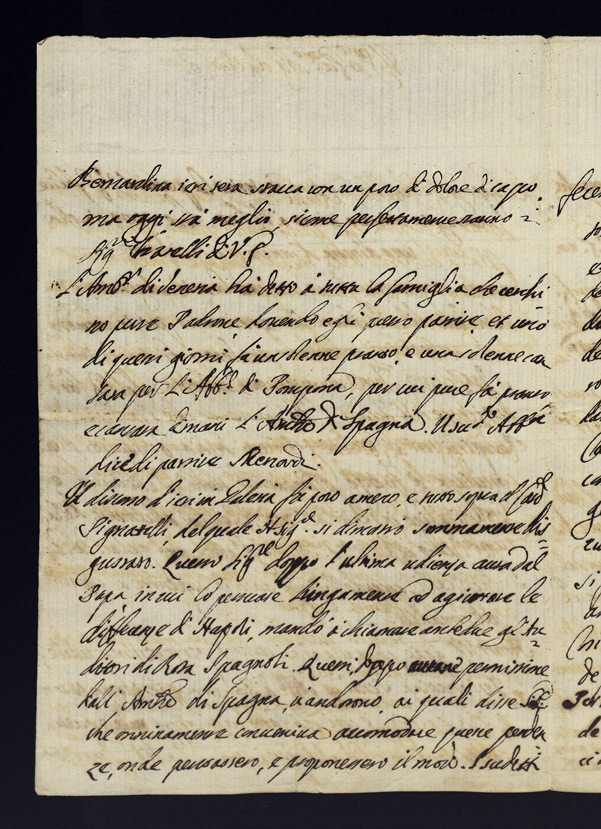 Bernardina ieri sera stava con un poco di dolore di capo
ma oggi stà meglio, siccome perfettamente stanno i
Sigri Fratelli di V. S.
L'Ambr di Venezia hà detto à tutta la famiglia che cerchi
no pure Padrone dovendo egli presto partire, et uno
di questi giorni fà un solenne pranzo, e una solenne can
tata per l'Abbe di Pompona, per cui pure fà pranzo
e cantata domani l'Ambre di Spagna. Il sude Abbe
dice di partire Mercordi.
Il discorso d'ieri in Galeria fù poco ameno, e tutto sopra il Card
Pignatelli, del quale N. Sige si dimostrò sommamente dis
gustato. Questo Sigre doppo l'ultima udienza avuta dal
Papa in cui lo pressasse lungamente ad agiustare le
differenze di Napoli, mandò à chiamare anche gl'Au
ditori di Rota Spagnoli. Questi, doppo avuta permissione
dall'Ambre di Spagna, v'andorono, ai quali disse
che onninamente conveniva accomodare queste penden
ze, onde pensassero, e proponessero il modo. I sudetti